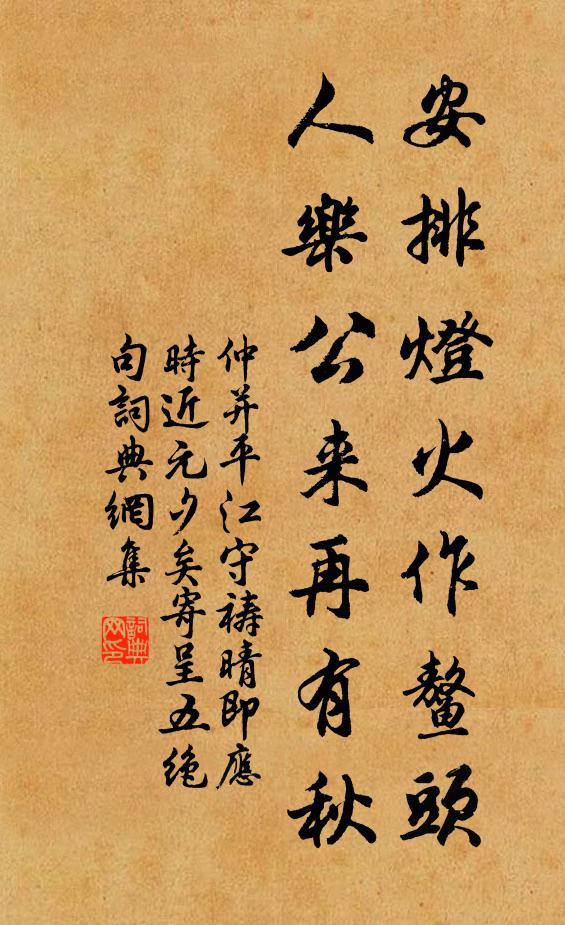 安排燈火作鼇頭
人樂公来再有秋
仲并平江守禱晴即應
時近元夕矣寄呈五绝
句詞典網集
詞典网印